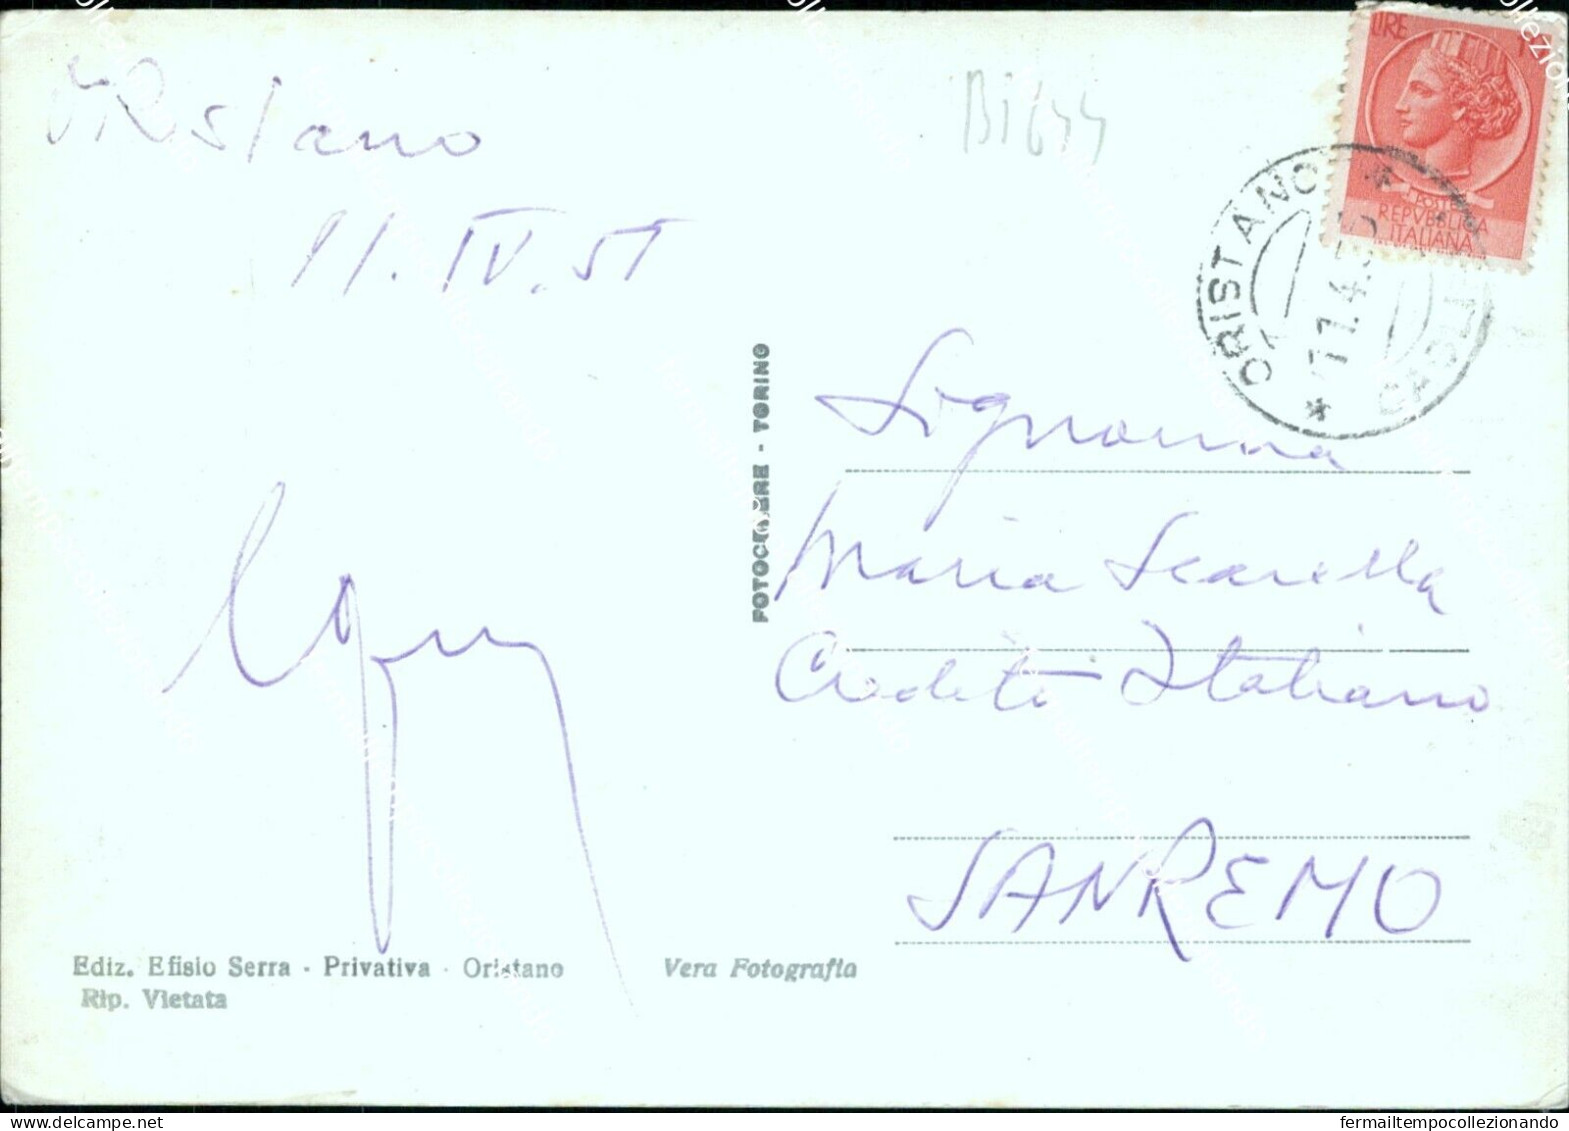 ORIStano
11. IV. 55
Bi644
LIRE 10
POSTE
REPVBBLICA
ITALIANA
* ORISTANO *
CAGLIARI
11.4.55
FOTOCELERE - TORINO
Signorina
Maria Scarella
Credito Italiano
SANREMO
Ediz. Efisio Serra - Privativa - Oristano
Rip. Vietata
Vera Fotografia
fermailtempocollezionando